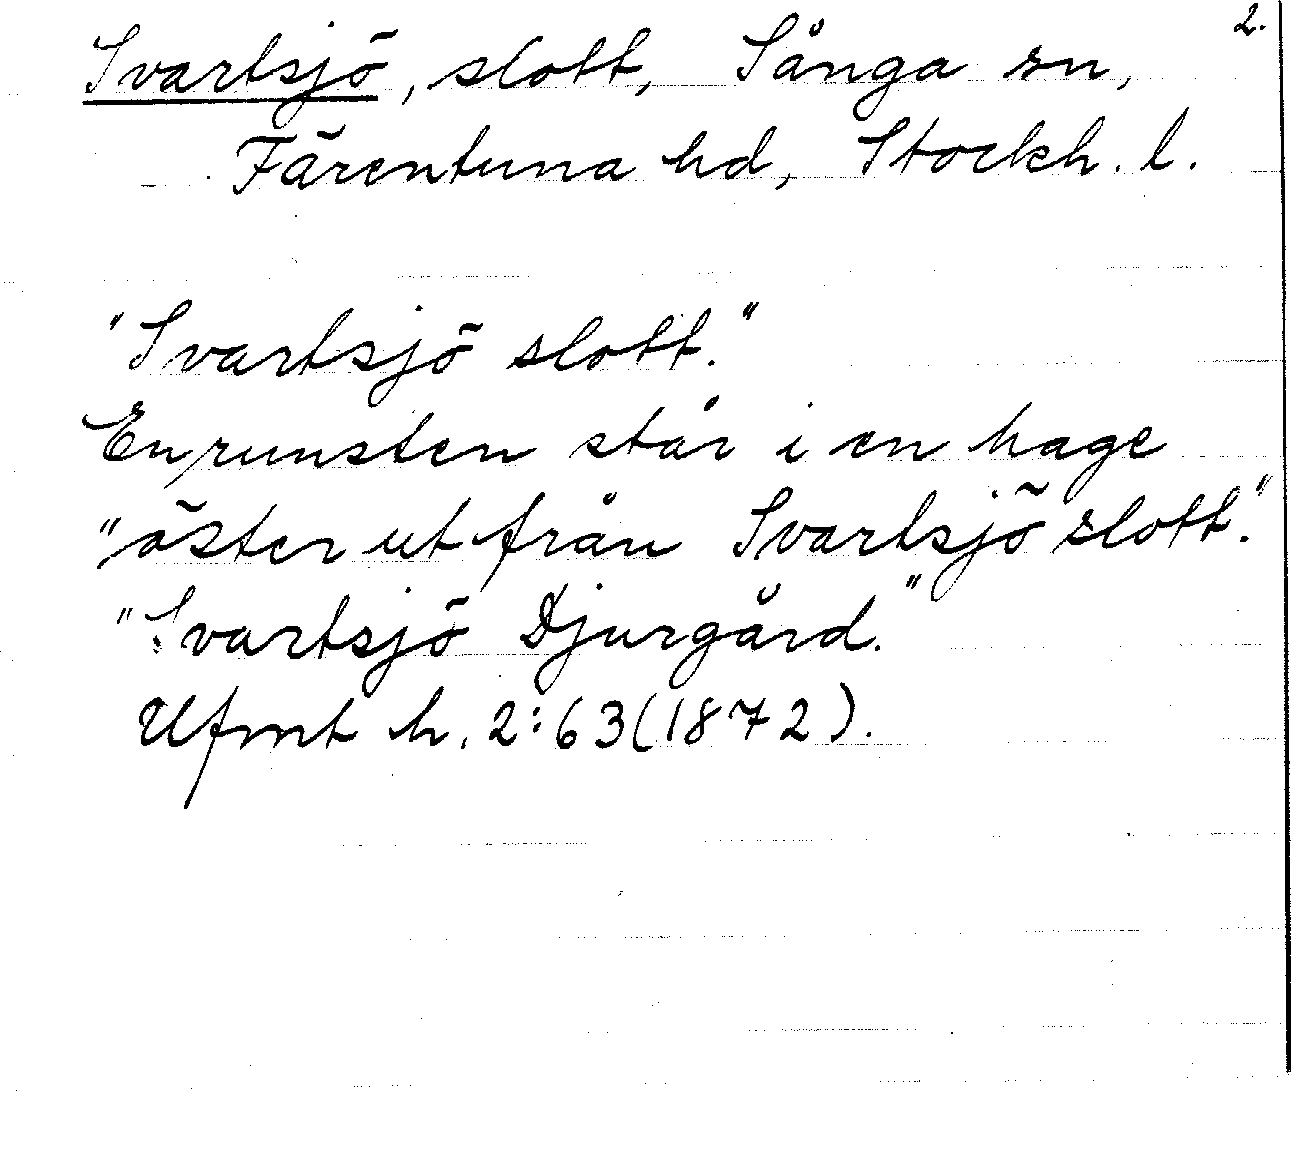 2.
Svartsjö, slott, Sånga sn,
Färentuna hd, Stockh. l.
"Svartsjö slott."
En runsten står i en hage
"öster ut från Svartsjö slott."
"Svartsjö Djurgård."
Ufmt h. 2:63(1872).